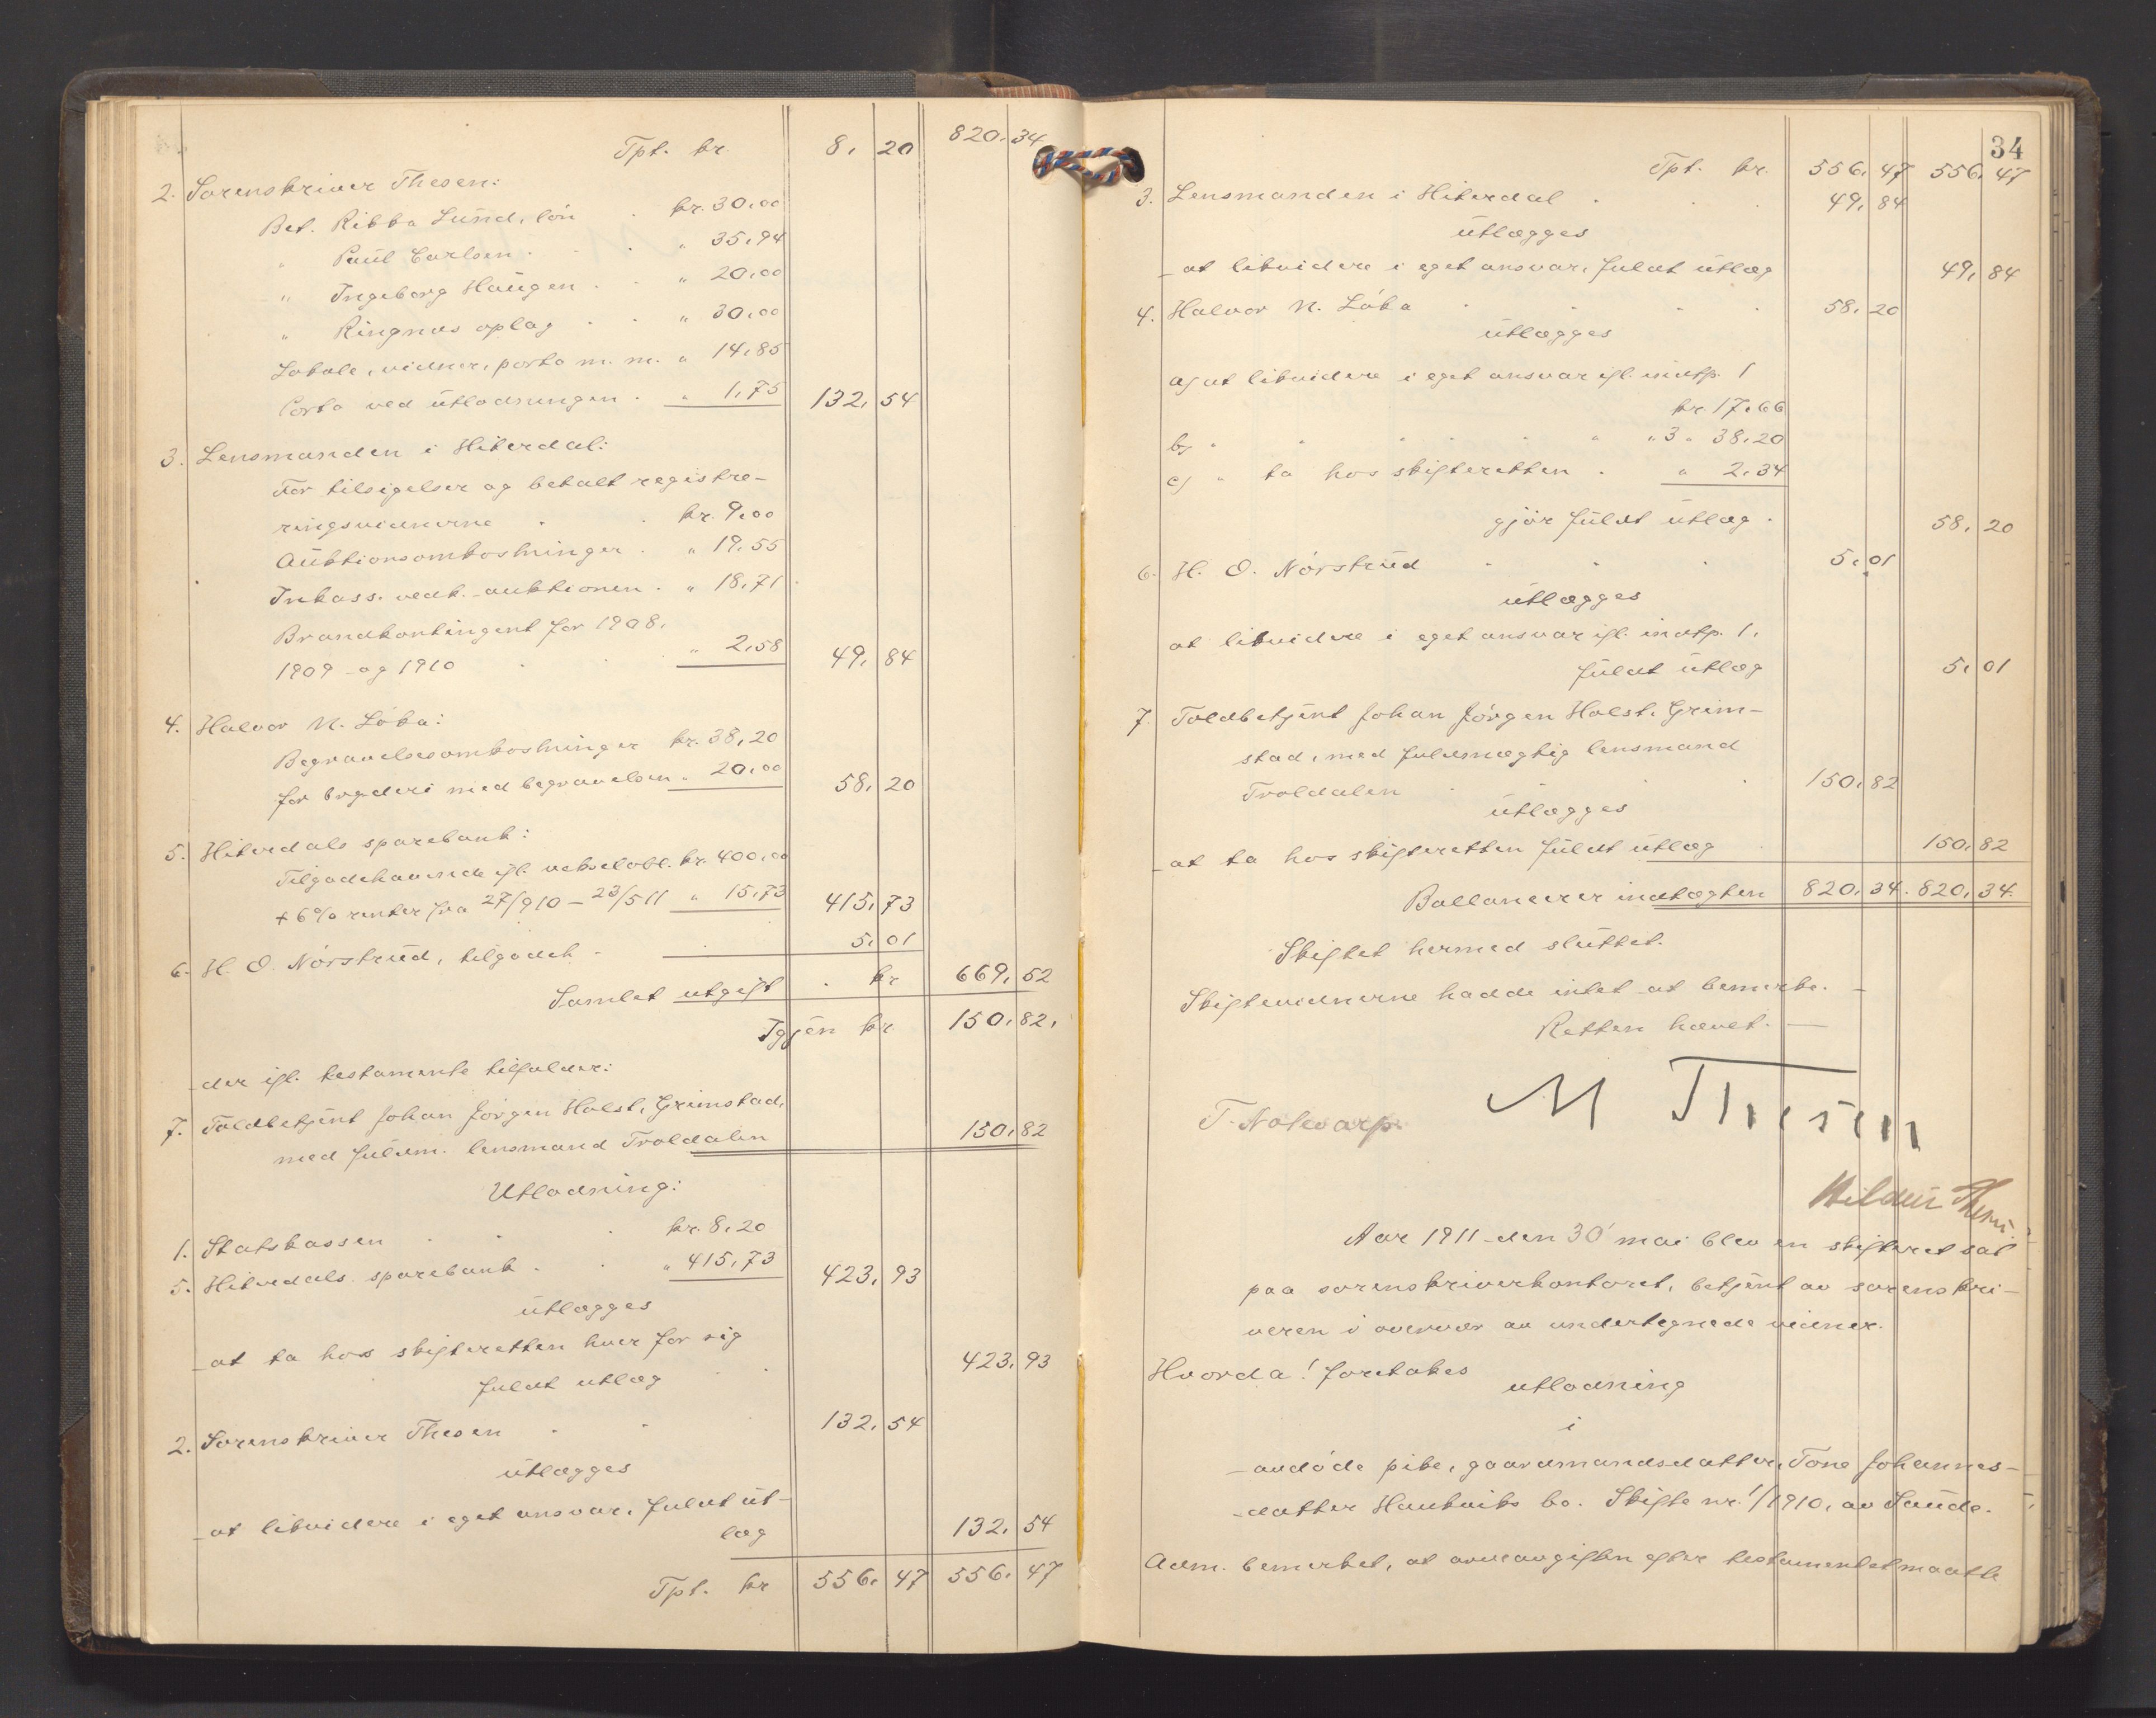 Tpt. kr. 8, 20 820, 34
2. Sorenskriver Thesen:
Bet. Ribba Lund, lön . kr. 30,00
" Paul Carlsen . . " 35,94
" Ingeborg Haugen . . " 20,00
" Ringnes oplag . . " 30,00
Lokale, vidner, porto m. m. " 14,85
Porto ved utlodningen . " 1,75 132, 54
3. Lensmanden i Hiterdal:
For tilsigelser og betalt registre-
ringsvidnerne . . kr. 9,00
Auktionsomkostninger . " 19,55
Inkass. vedk. auktionen . " 18,71
Brandkontingent for 1908,
1909 og 1910 . . " 2,58 49, 84
4. Halvor N. Löka:
Begravelsesomkostninger kr. 38,20
for bryderi med begravelsen " 20,00 58, 20
5. Hiterdals sparebank:
Tilgodehavende ifl. vekselobl. kr. 400,00
+ 6% renter fra 27/9 10 – 23/5 11 " 15,73 415, 73
6. H. O. Nörstrud, tilgodeh . . 5, 01
Samlet utgift . kr 669, 52
Igjen kr. 150, 82,
der ifl. testamente tilfalder:
7. Toldbetjent Johan Jörgen Holst, Grimstad,
med fuldm. lensmand Troldalen 150, 82
Utlodning:
1. Statskassen . . . kr. 8,20
5. Hiterdals sparebank . . " 415,73 423, 93
utlægges
at ta hos skifteretten hver for sig
fuldt utlæg . . 423, 93
2. Sorenskriver Thesen . . 132, 54
utlægges
at likvidere i eget ansvar, fuldt ut-
læg 132, 54
Tpt. kr 556, 47 556, 47
34
Tpt. kr. 556, 47 556, 47
3. Lensmanden i Hiterdal . . . 49, 84
utlægges
at likvidere i eget ansvar, fuldt utlæg 49, 84
4. Halvor N. Löka . . . . 58, 20
utlægges
a) at likvidere i eget ansvar ifl. indtp. 1
kr. 17,66
b) " " " " " " 3 " 38,20
c) " ta hos skifteretten . " 2,34
gjör fuldt utlæg . 58, 20
6. H. O. Nörstrud . . . 5, 01
utlægges
at likvidere i eget ansvar ifl. indtp. 1,
fuldt utlæg 5, 01
7. Toldbetjent Johan Jörgen Holst, Grim-
stad, med fuldmægtig lensmand
Troldalen . . . 150, 82
utlægges
at ta hos skifteretten fuldt utlæg . 150, 82
Ballancerer indtægten 820, 34. 820, 34.
Skiftet hermed sluttet.
Skiftevidnerne hadde intet at bemerke. –
Retten hævet. –
M Thesen
T. Notvarp.
Hildur Thesen
Aar 1911 den 30' mai blev en skifteret sat
paa sorenskriverkontoret, betjent av sorenskri-
veren i overvær av undertegnede vidner.
Hvorda! foretokes
utlodning
i
avdöde pike, gaardmandsdatter, Tone Johannes-
datter Haukviks bo. Skifte nr. 1/1910, av Saude.
Adm. bemerket, at arveavgiften efter testamentet maatte